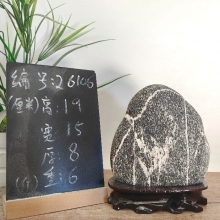 编号:26106
(厘米)高:19
宽:15
厚:8
(斤)重:6